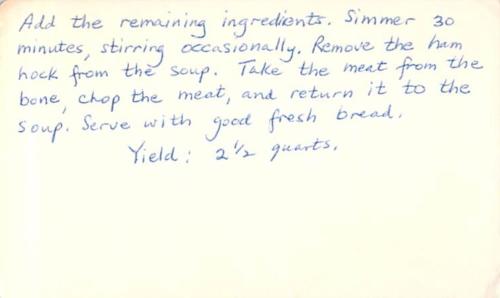 Add the remaining ingredients. Simmer 30
minutes, stirring occasionally. Remove the ham
hock from the soup. Take the meat from the
bone, chop the meat, and return it to the
soup. Serve with good fresh bread.
Yield: 2 1/2 quarts.